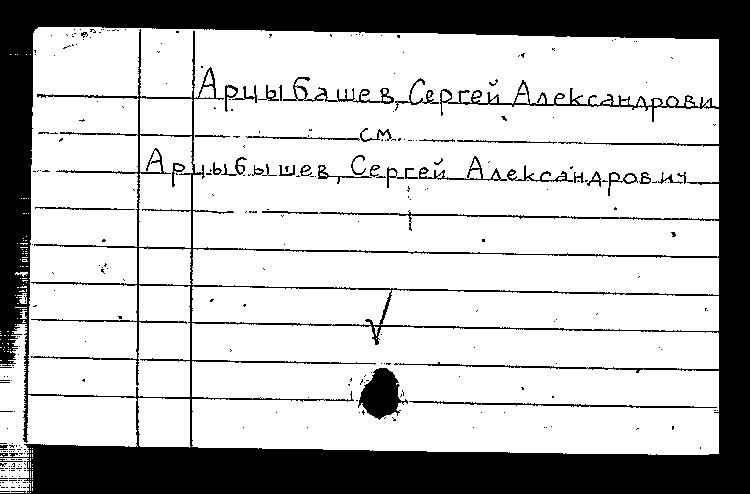 Арцыбашев, Сергей Александрови
см.
Арцыбышев, Сергей Александрович